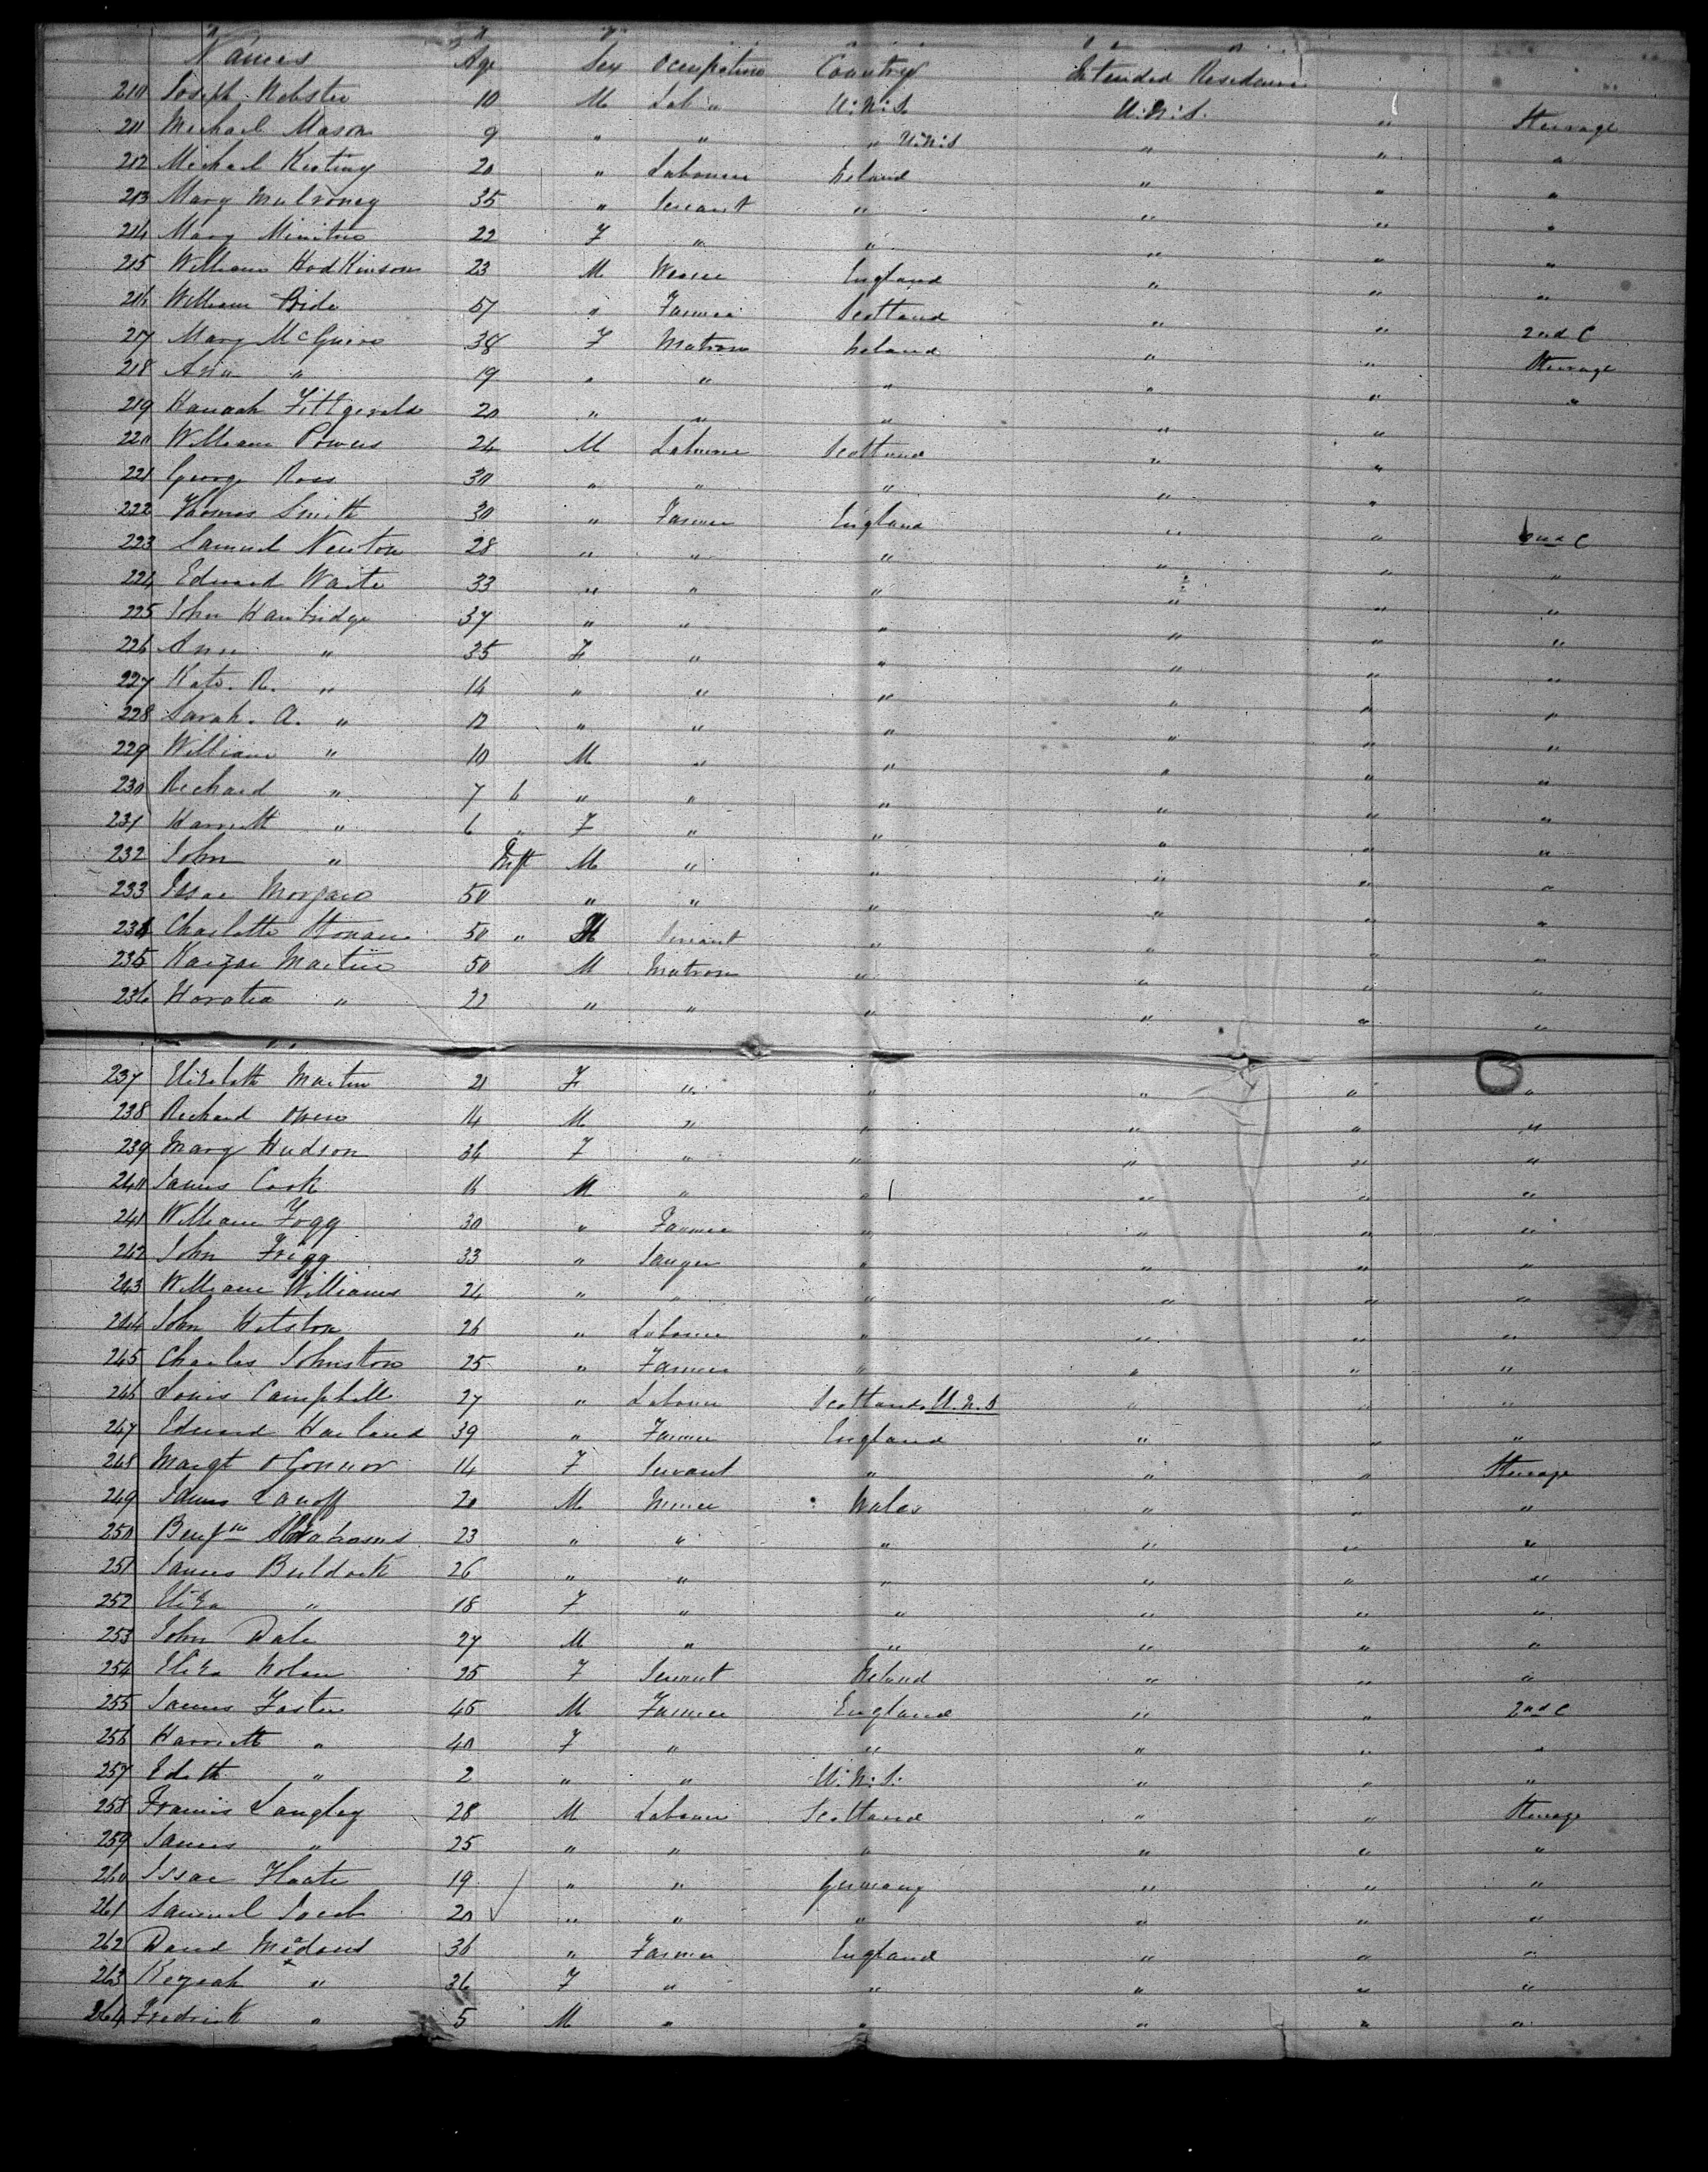 Names Age Sex Occupation Country Intended Residence
210 Joseph Webster 10 M Lab " U.N.S. U.N.S. " Steerage
211 Michael Mason 9 " " " U.N.S " " "
212 Michael Keating 20 " Labourer Ireland " " "
213 Mary Mulroney 35 " Servant " " " "
214 Mary 22 F " " " " "
215 William Hodkinson 23 M England " " "
216 William Bride 57 " Farmer Scotland " " 2nd C
217 Mary McGuire 38 F Matron Ireland " " Steerage
218 Ann " 19 " " " " " "
219 Hanaah Fittgerald 20 " " " " "
220 William Powers 24 M Labourer Scotland " "
221 George Ross 30 " " " " "
222 Thomas Smith 30 " Farmer England " " 2nd C
223 Samuel Newton 28 " " " " " "
224 Edward Waite 33 " " " " " "
225 John Hambridge 37 " " " " " "
226 Ann " 35 F " " " " "
227 Kate. R. " 14 " " " " " "
228 Sarah. A. " 12 " " " " " "
229 William " 10 M " " " " "
230 Richard " 7 6 " " " " " "
231 Harriett " 6 " F " " " " "
232 John " Inft M " " " " "
233 Issac Morgan 50 " " " " " "
234 Charlotte 50 " M Servant " " " "
235 Martin 50 M Matron " " " "
236 Horatio " 22 " " " " " "
237 Elizabeth Martin 21 F " " " " "
238 Richard Owen 14 M " " " " "
239 Mary Hudson 36 F " " " " "
240 James Cook 16 M " " " " "
241 William Fogg 30 " Farmer " " " "
242 John Frigg 33 " " " " "
243 William Williams 24 " " " " " "
244 John 26 " Labourer " " " "
245 Charles Johnston 25 " Farmer " " " "
246 Louis Campbell 27 " Labourer Scotland. U.N.S " " "
247 Edward Harland 39 " Farmer England " " "
248 Margt O'Connor 14 F Servant " " " Steerage
249 James 20 M Miner Wales " " "
250 Benjm Abrahams 23 " " " " " "
251 James Buldock 26 " " " " " "
252 Eliza " 18 F " " " " "
253 John Dale 27 M " " " " "
254 Eliza Nolan 25 F Servant Ireland " " "
255 James Foster 45 M Farmer England " " 2nd C
256 Harriett " 40 F " " " " "
257 Edith " 2 " " U.N.S. " " "
258 Francis Langley 28 M Labourer Scotland " " Steerage
259 James " 25 " " " " " "
260 Issac 19 " " Germany " " "
261 Samuel Jacob 20 " " " " " "
262 David 36 " Farmer England " " "
263 Keziah " 36 F " " " " "
264 Fredrick " 5 M " " " " "